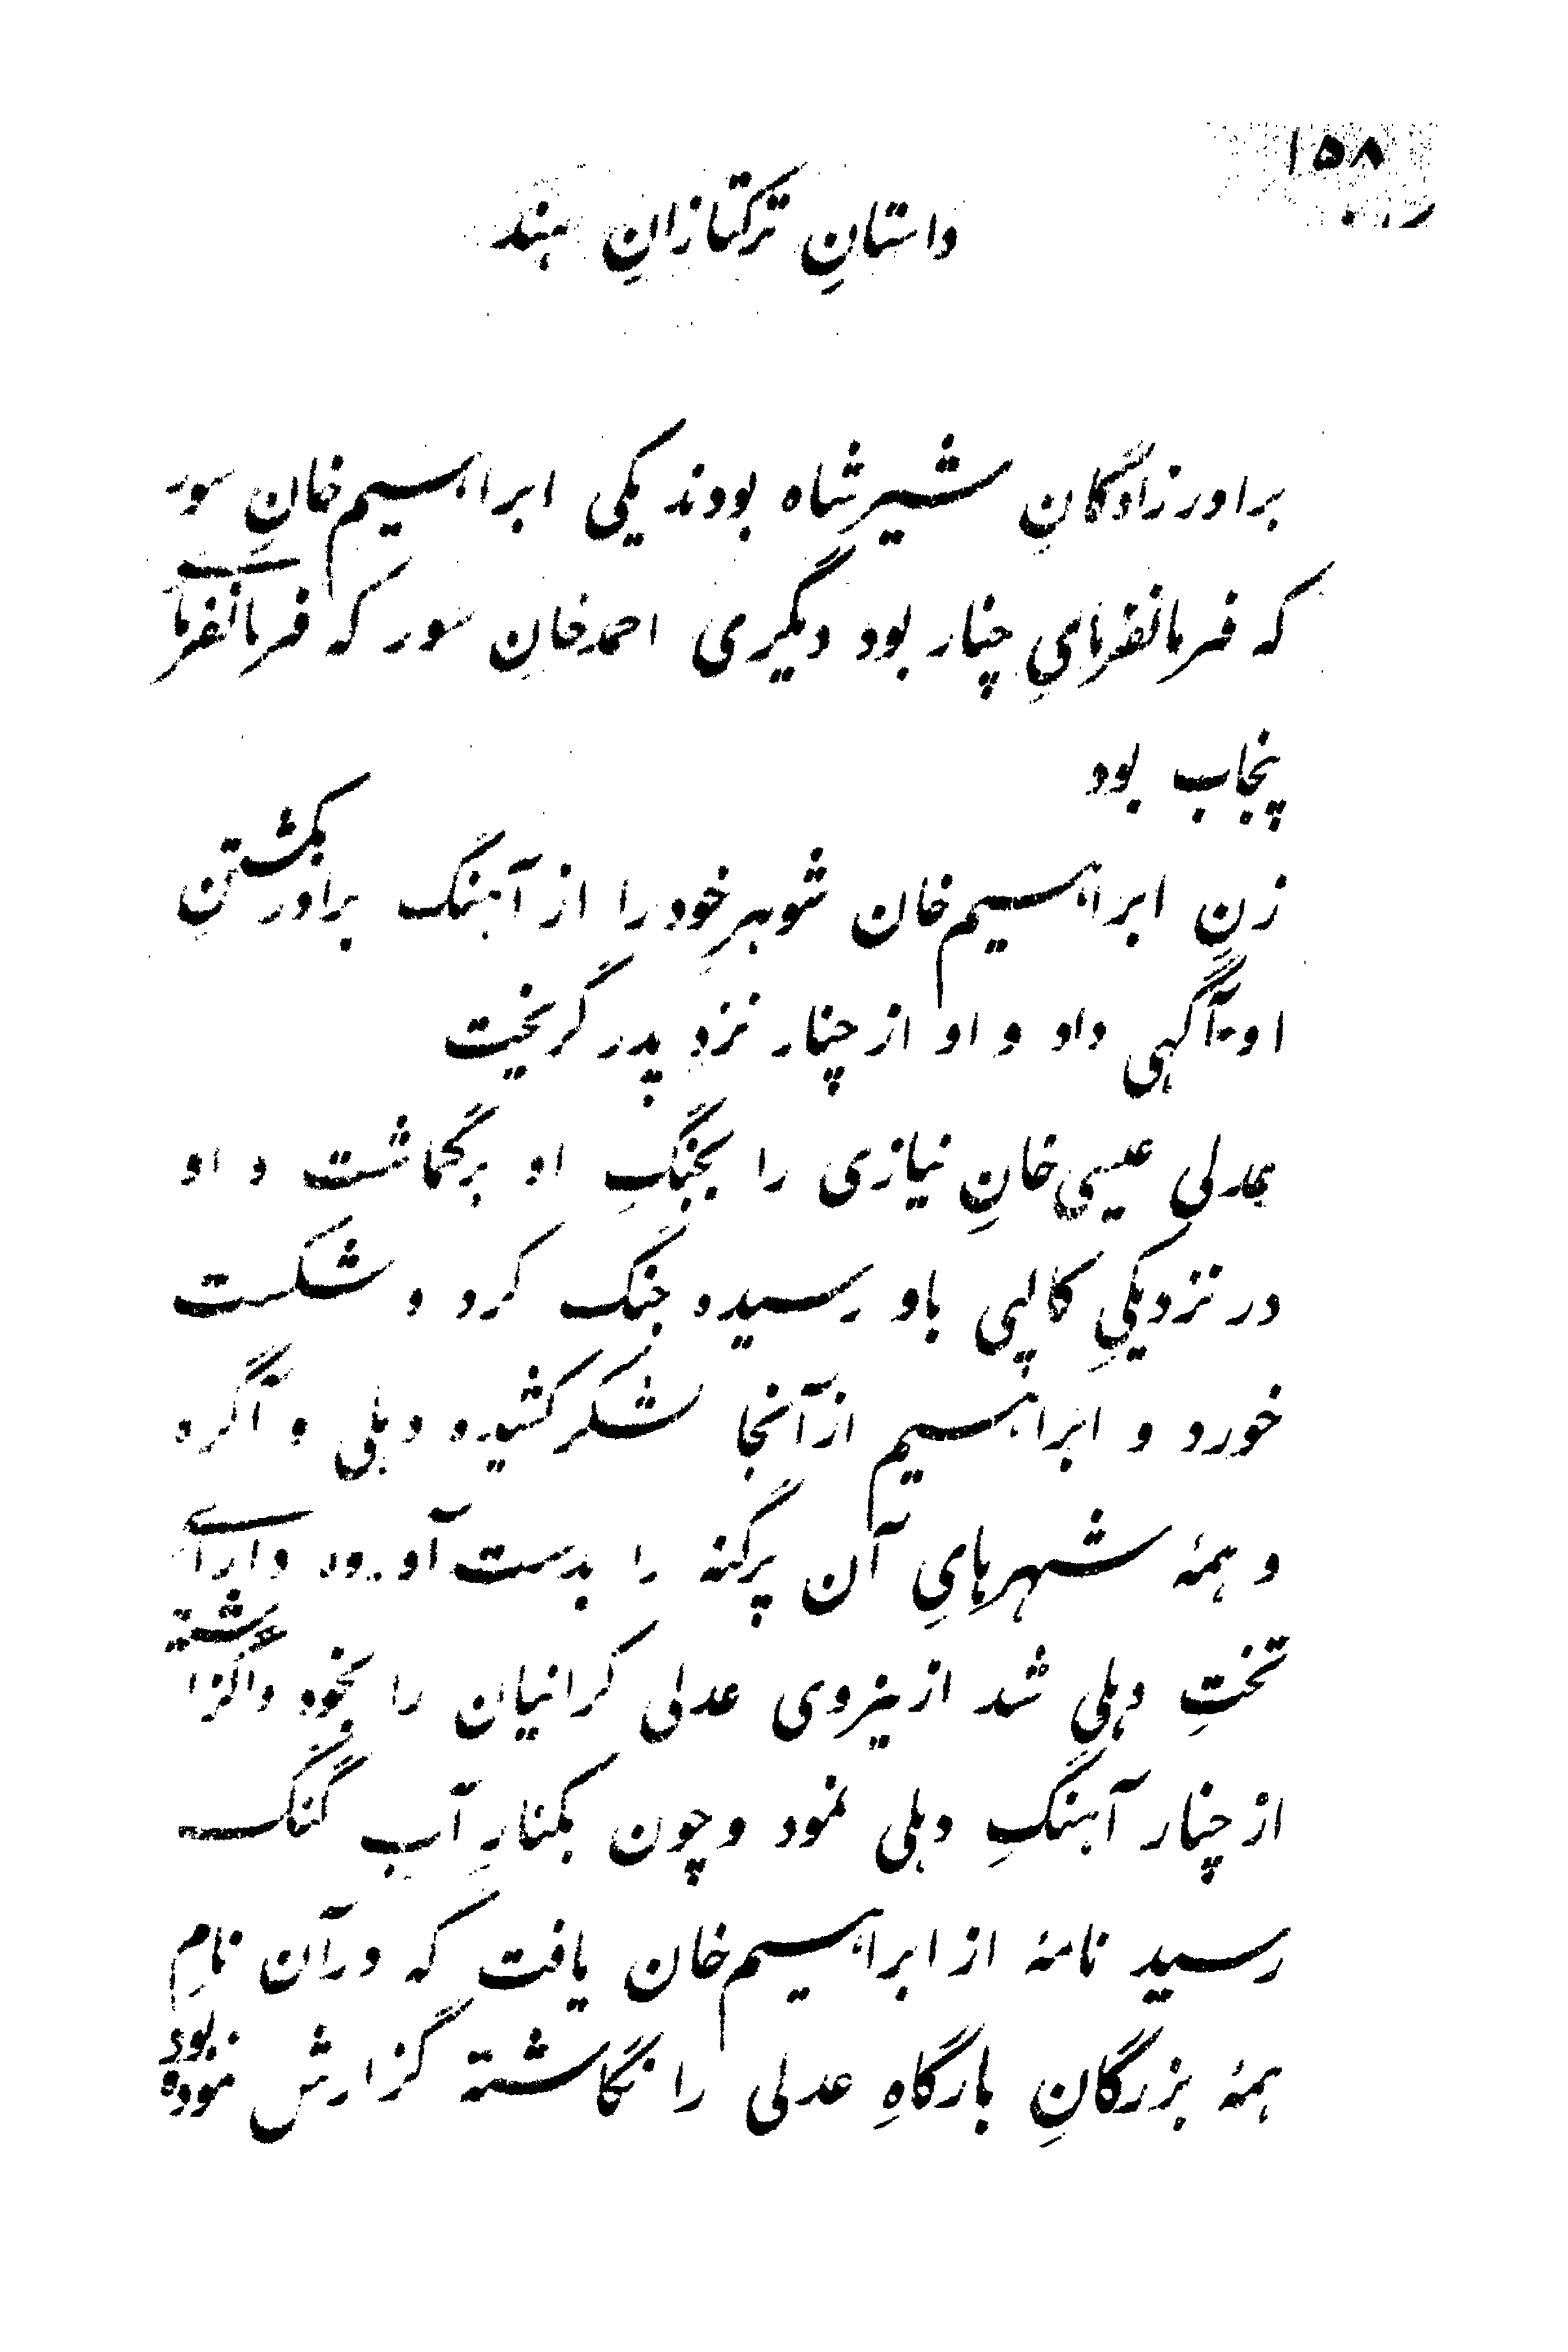 ۱۵۸
داستانِ ترکتازانِ ہند
برادرزادگانِ شیرشاه بودند یکی ابراہیم‌خانِ سور
که فرمانفرمایِ چنار بود دیگری احمدخانِ سور که فرمانفرمای
پنجاب بود
زنِ ابراہیم‌خان شوہرِ خود را از آہنگ برادر بکشتنِ
او آگہی داد و او از چنار نزد پدر گریخت
عدلی عیسی‌خانِ نیازی را بجنگِ او برگماشت و او
در نزدیکیِ کالپی باو رسیده جنگ کرد و شکست
خورد و ابراہیم ازآنجا لشکر کشیده دہلی و آگره
و ہمهٔ شہرہایِ آن پرگنه را بدست آورده دارای
تختِ دہلی شد ازینروی عدلی کرانیان را بخود واگزاشته
از چنار آہنگِ دہلی نمود و چون بکنارِ آب گنگ
رسید نامهٔ از ابراہیم‌خان یافت که درآن نامِ
ہمهٔ بزرگانِ بارگاهِ عدلی را نگاشته گزارش نموده بود